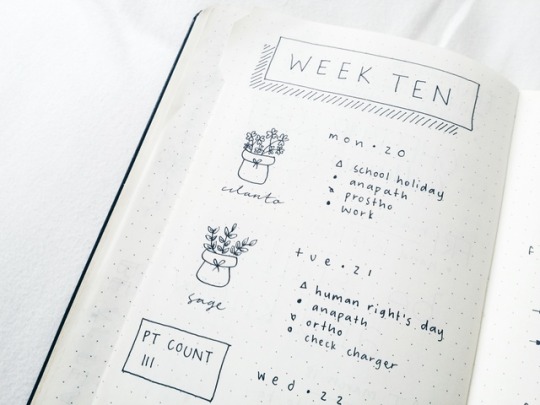 WEEK TEN
mon • 20
school holiday
anapath
prostho
work
cilantro
tue • 21
human right's day
anapath
ortho
check charger
sage
PT COUNT
III
wed • 22